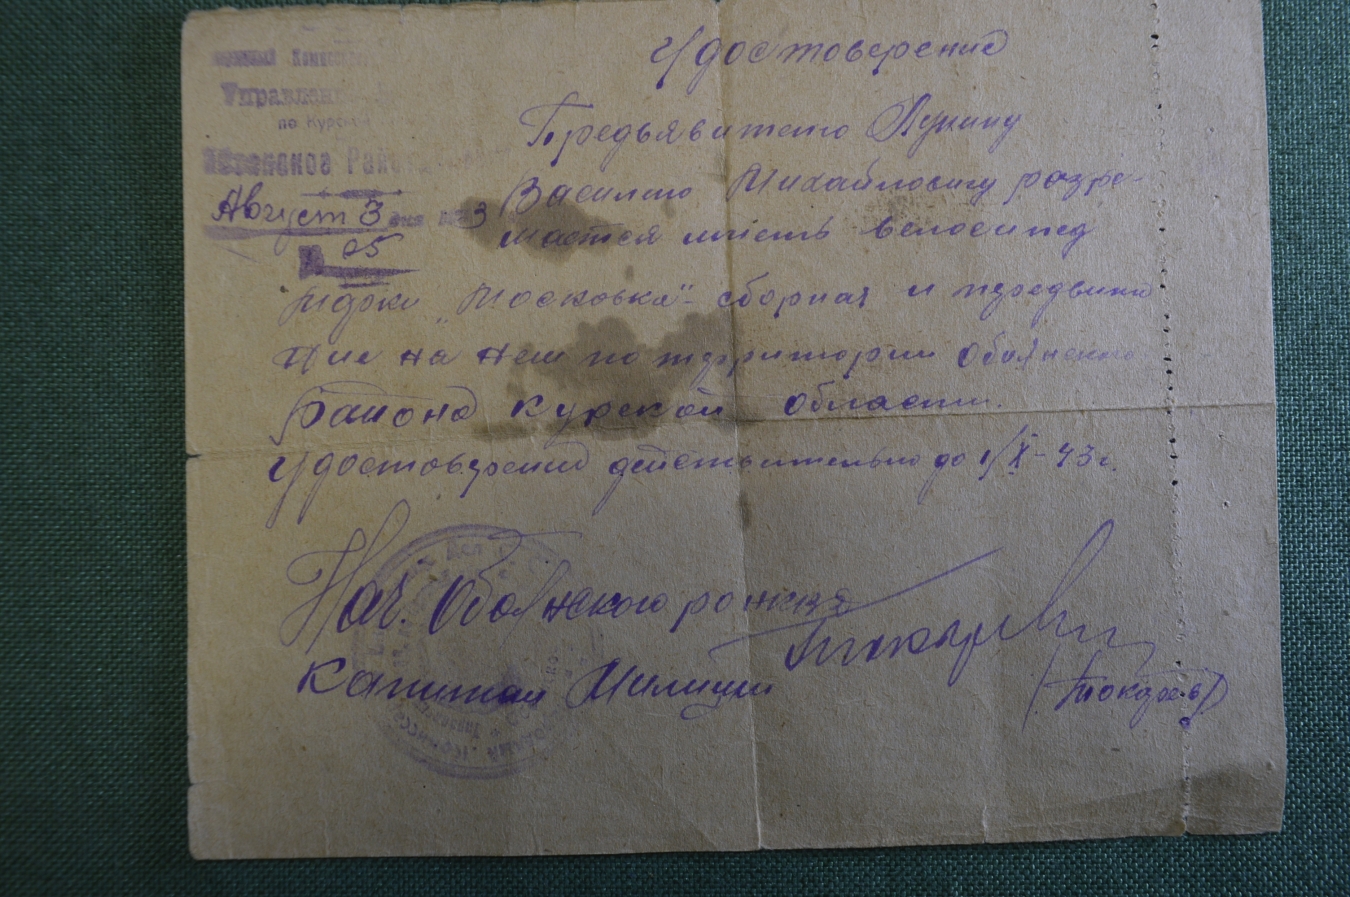 Удостоверение
Управлени
по Курской
Районное
Август 3 дня 1943
№ 95
Предъявителю Лунину
Василию Михайловичу разре-
шается иметь велосипед
марки "Московка"- сборная и передвиже
ние на нем по территории Обоянского
района Курской области.
Удостоверение действительно до 1/X-43г.
Нач. Обоянского ро нквд
капитан Милиции
(Токарев)